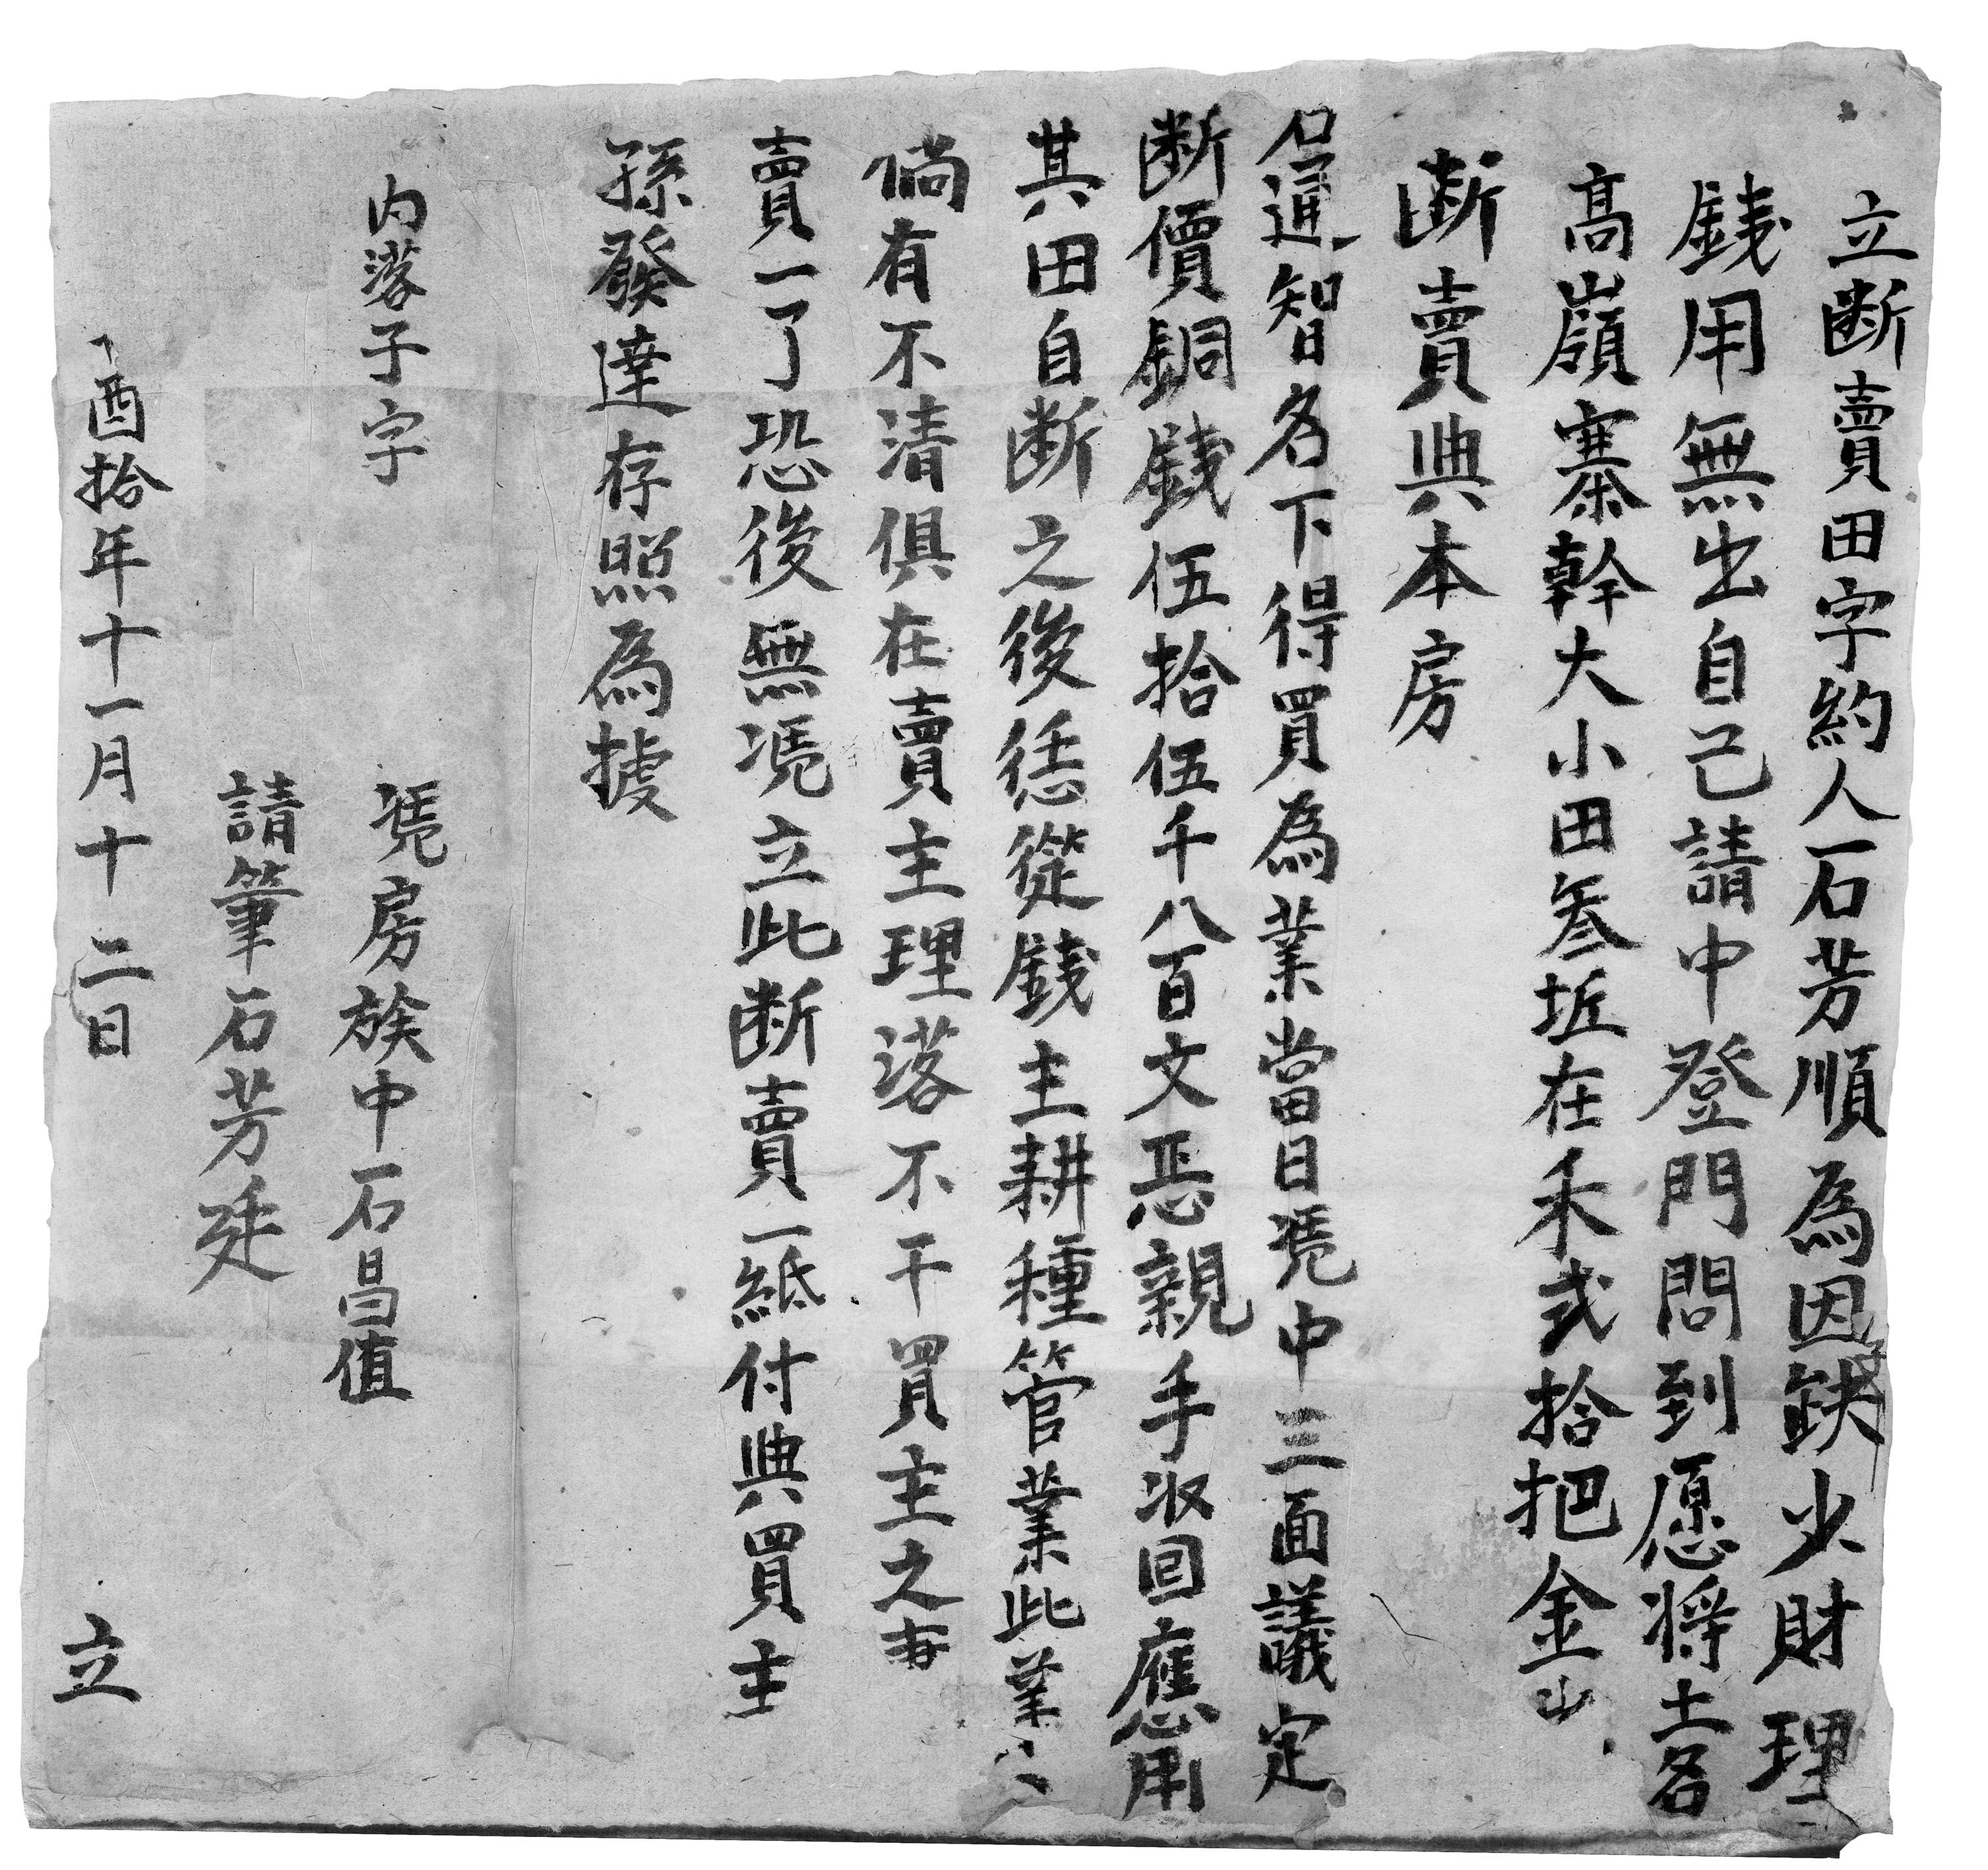 立断賣田字約人石芳順為因缺少財理
銭用無出自己請中登門問到愿将土名
高嶺寨幹大小田叁坵在禾弍拾把金山
断賣與本房
石通智名下得買為業當日凴中三面議定
断價銅銭伍拾伍千八百文恁親手收回應用
其田自断之後恁從銭主耕種管業此業
倘有不清俱在賣主理落不干買主之事
賣一了恐後無凴立此断賣一紙付與買主
孫發達存照為據
内落子字
凴房族中石昌值
請筆石芳廷
酉拾年十一月十二日 立